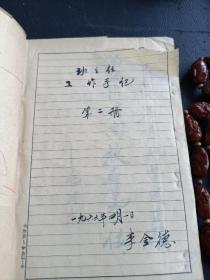 班主任
工作手记
第二册
一九六六年四月一日
李金德